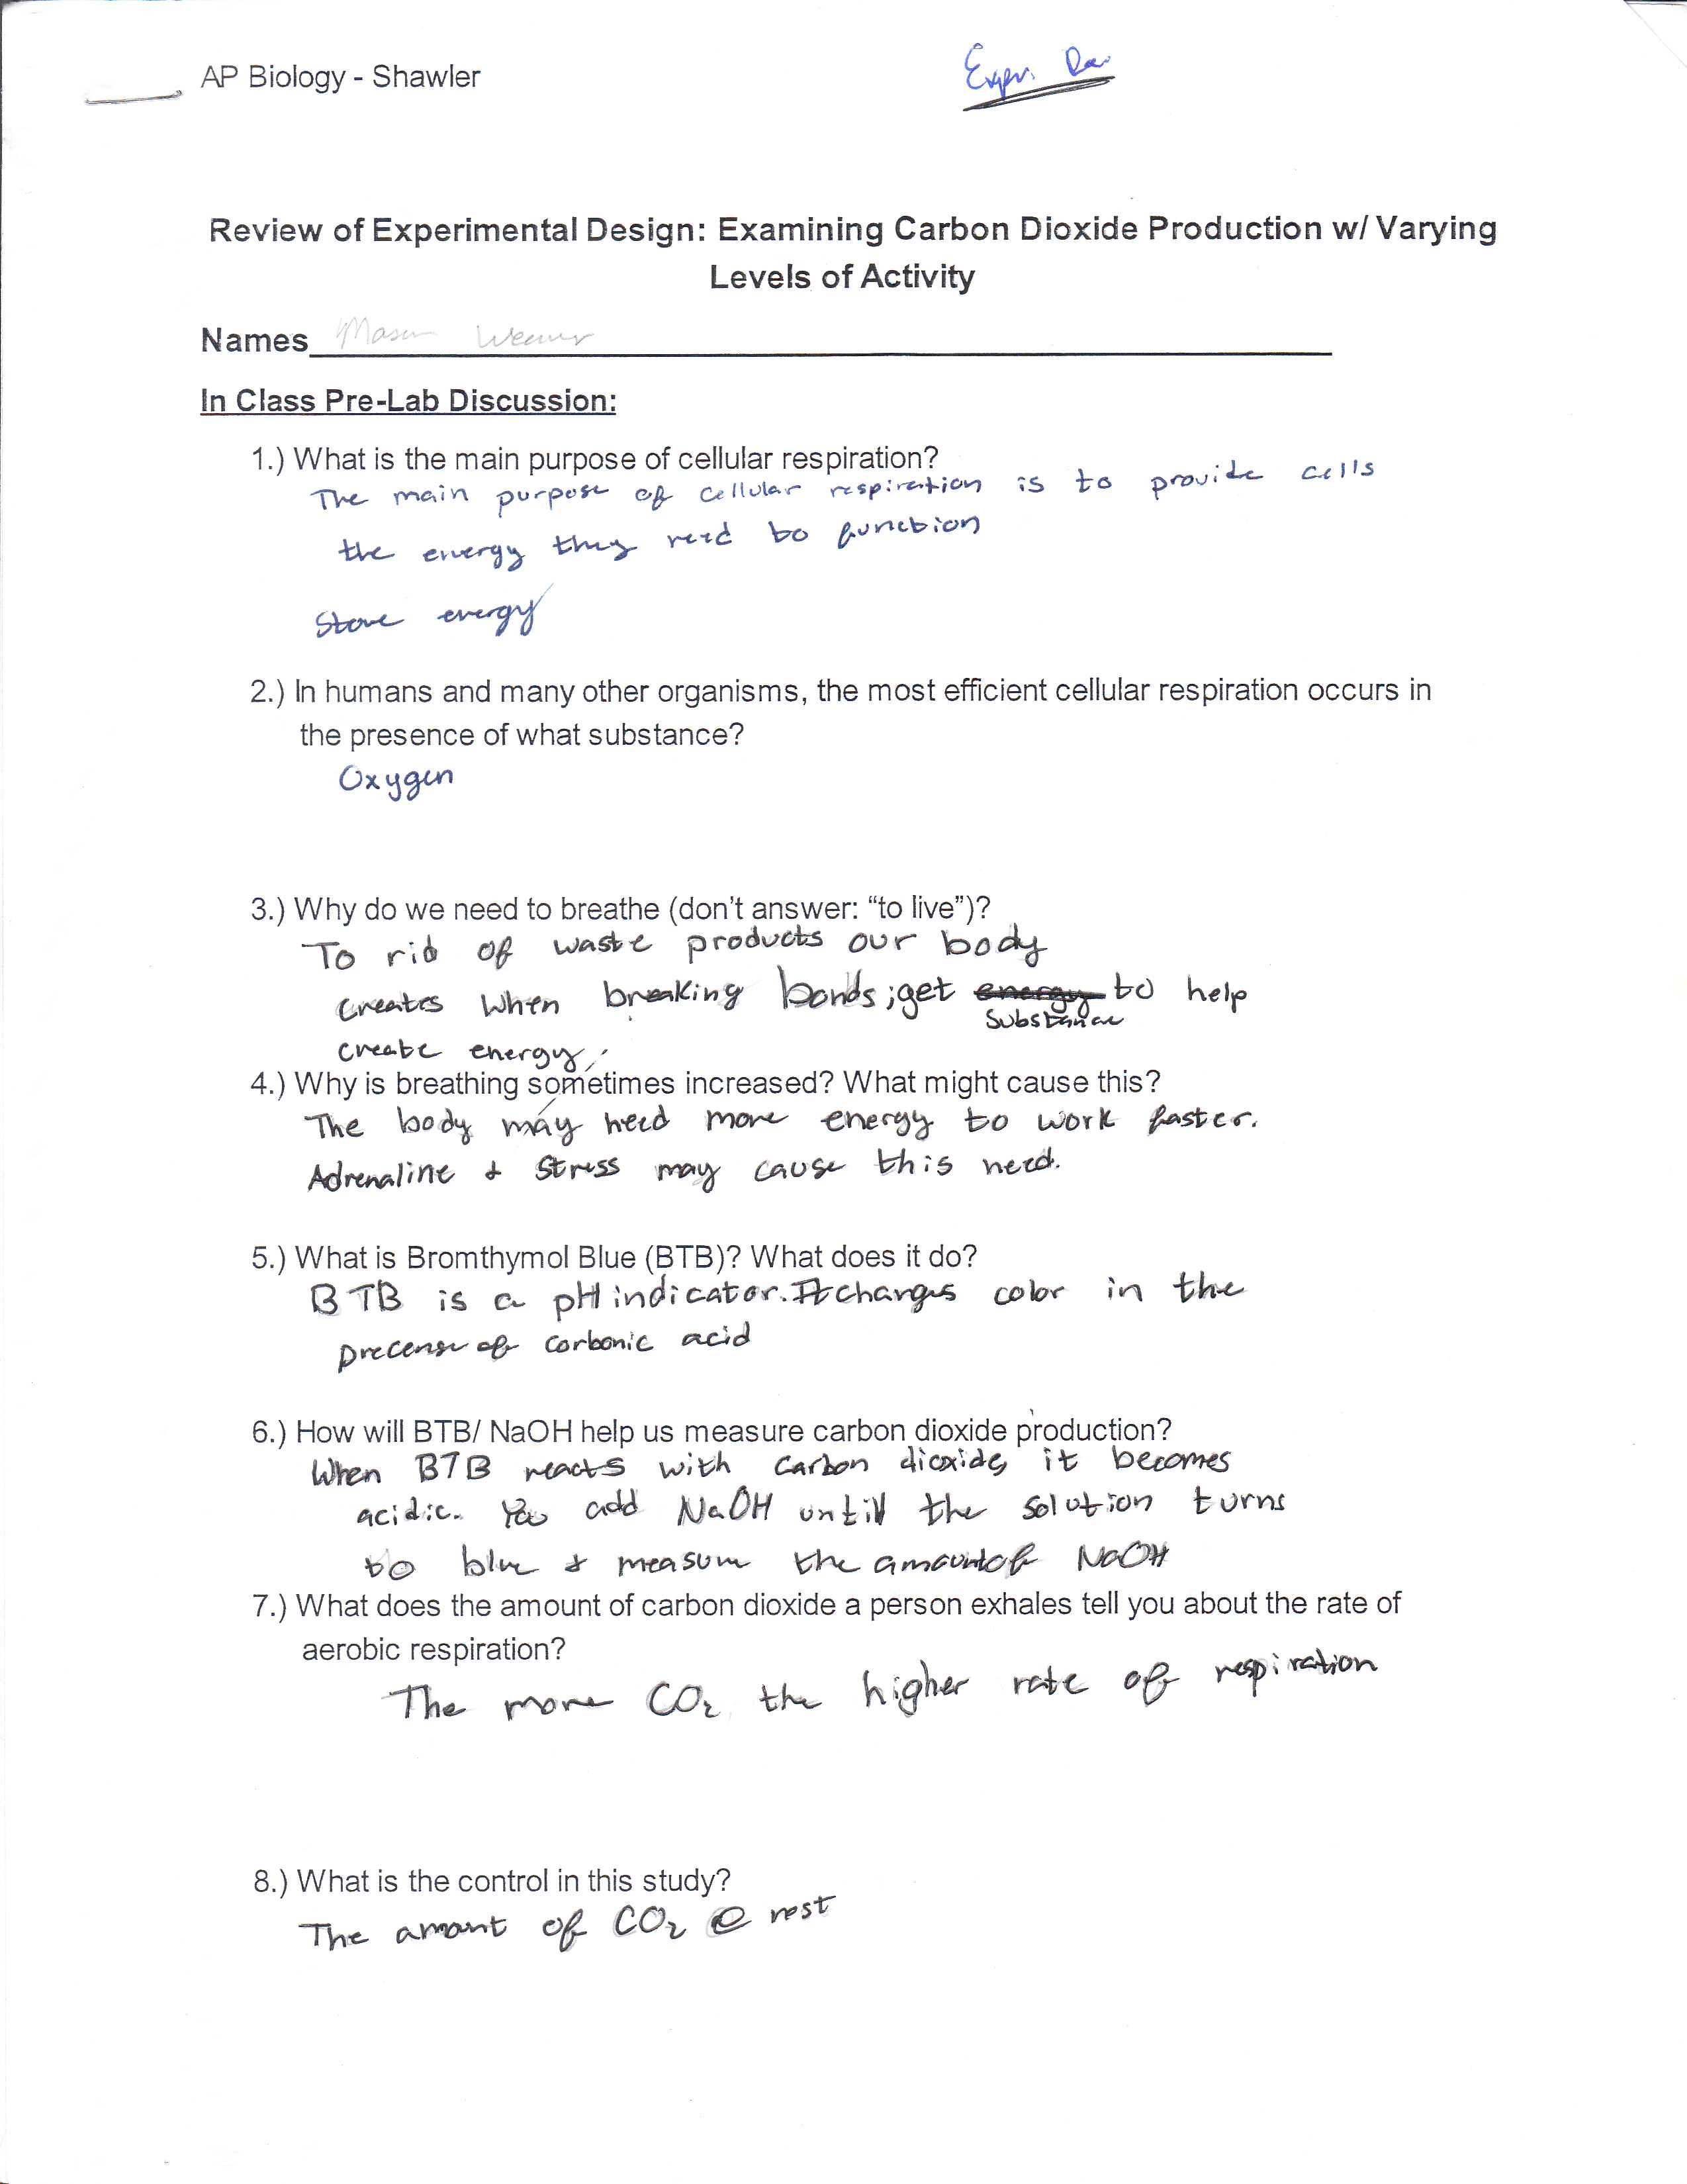 AP Biology - Shawler
Exper. Des.
Review of Experimental Design: Examining Carbon Dioxide Production w/ Varying
Levels of Activity
Names Mason Weaver
In Class Pre-Lab Discussion:
1.) What is the main purpose of cellular respiration?
The main purpose of cellular respiration is to provide cells
the energy they need to function
Store energy
2.) In humans and many other organisms, the most efficient cellular respiration occurs in
the presence of what substance?
Oxygen
3.) Why do we need to breathe (don't answer: "to live")?
To rid of waste products our body
creates when breaking bonds; get energy to help
substance
create energy.
4.) Why is breathing sometimes increased? What might cause this?
The body may need more energy to work faster.
Adrenaline + stress may cause this need.
5.) What is Bromthymol Blue (BTB)? What does it do?
BTB is a pH indicator. It changes color in the
precense of carbonic acid
6.) How will BTB/ NaOH help us measure carbon dioxide production?
When BTB reacts with carbon dioxide, it becomes
acidic. You add NaOH untill the solution turns
to blue + measure the amount of NaOH
7.) What does the amount of carbon dioxide a person exhales tell you about the rate of
aerobic respiration?
The more CO₂ the higher rate of respiration
8.) What is the control in this study?
The amount of CO₂ @ rest